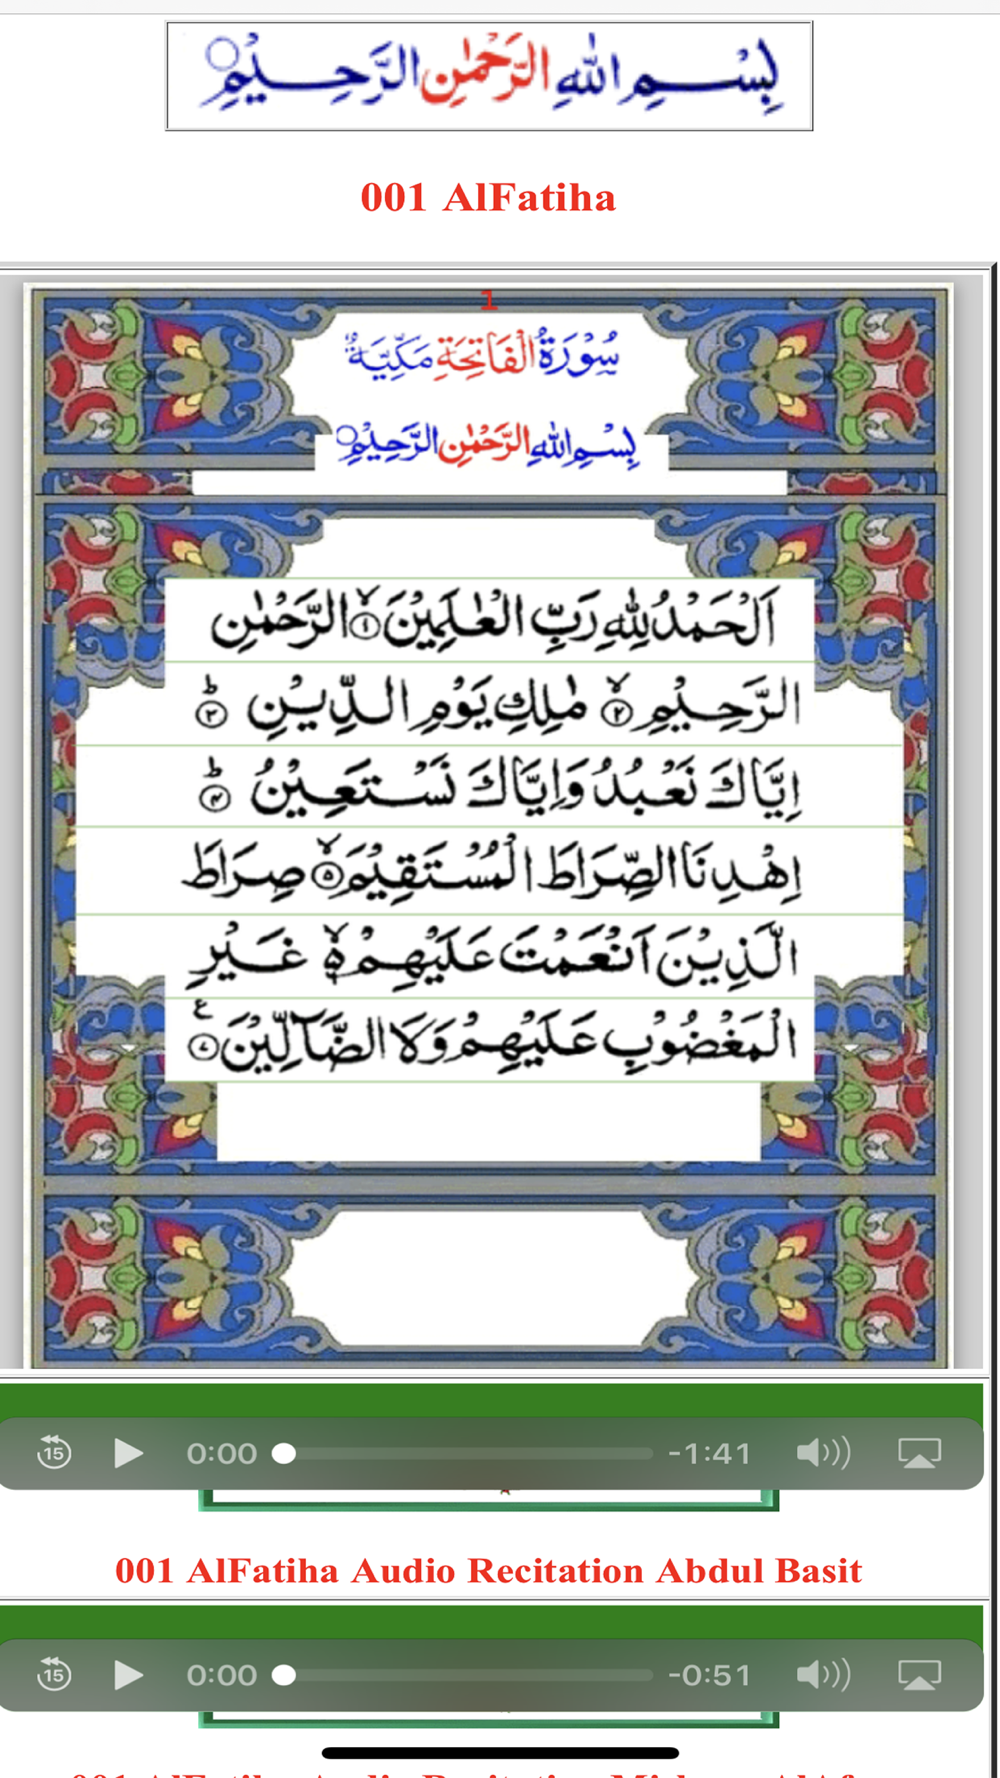 بِسْمِ اللهِ الرَّحْمٰنِ الرَّحِيْمِ
001 AlFatiha
1
سُوْرَةُ الْفَاتِحَةِ مَكِّيَّةٌ
بِسْمِ اللهِ الرَّحْمٰنِ الرَّحِيْمِ
اَلْحَمْدُ لِلّٰهِ رَبِّ الْعٰلَمِيْنَ ۙ﴿۱﴾ الرَّحْمٰنِ
الرَّحِيْمِ ۙ﴿۲﴾ مٰلِكِ يَوْمِ الدِّيْنِ ؕ﴿۳﴾
اِيَّاكَ نَعْبُدُ وَاِيَّاكَ نَسْتَعِيْنُ ؕ﴿۴﴾
اِهْدِنَا الصِّرَاطَ الْمُسْتَقِيْمَ ۙ﴿۵﴾ صِرَاطَ
الَّذِيْنَ اَنْعَمْتَ عَلَيْهِمْ ۙ۬ غَيْرِ
الْمَغْضُوْبِ عَلَيْهِمْ وَلَا الضَّآلِّيْنَ ﴿۷﴾ ع
15 0:00 -1:41
001 AlFatiha Audio Recitation Abdul Basit
15 0:00 -0:51